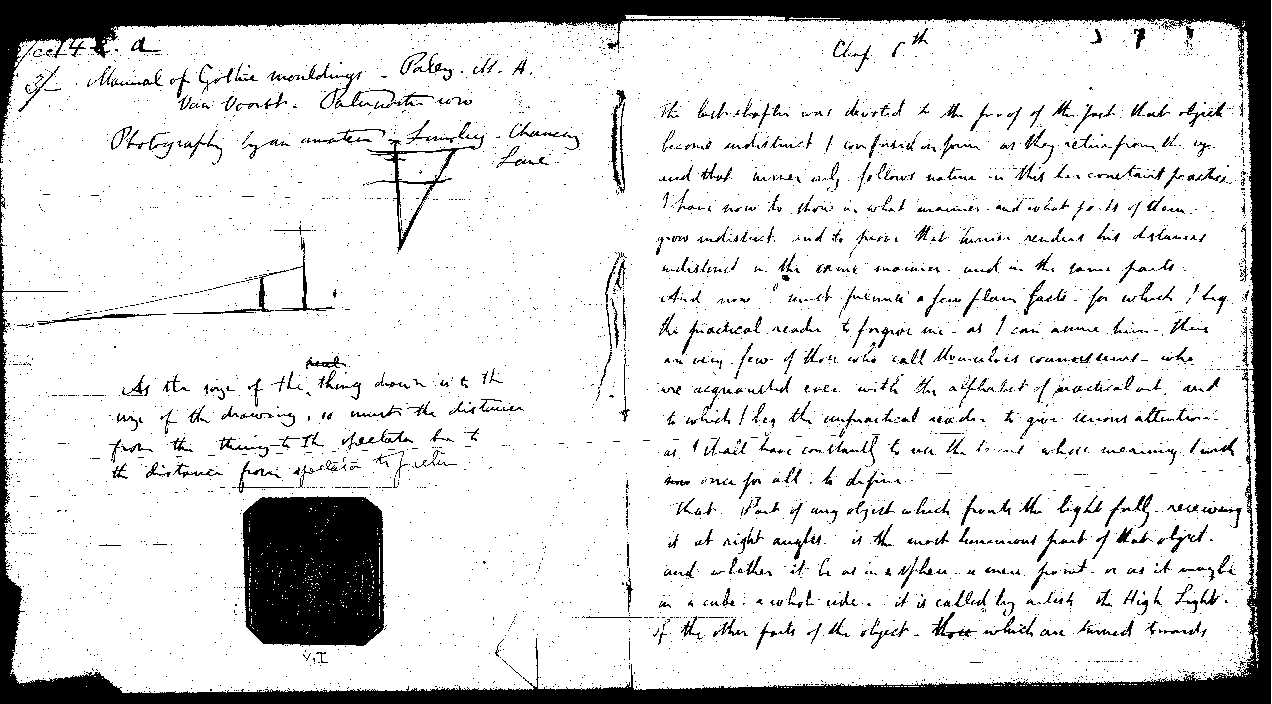 3/- Manual of Gothic mouldings - Paley. M. A.
Van Voorst. Paternoster row
Photography by an amateur - Chancery
Lane
As the size of the thing drawn is to the
size of the drawing, so must the distance
from the thing to the spectator be to
the distance from spectator to picture
V,I
Chap 6th
The last chapter was devoted to the proof of the fact that objects
become indistinct & confused in form as they retire from the eye
and that Turner only follows nature in this his constant practice
I have now to show in what manner and what parts of them
grow indistinct. and to prove that Turner renders his distances
indistinct in the same manner and in the same parts.
And now I must premise a few plain facts - for which I beg
the practical reader to forgive me - as I can assure him - there
are very few of those who call themselves connoisseurs - who
are acquainted even with the alphabet of practical art and
to which I beg the unpractical reader to give serious attention
as I shall have constantly to use the terms whose meaning I wish
now once for all to define.
That Part of any object which fronts the light fully - receiving
it at right angles. is the most luminous part of that object.
and whether it be as in a sphere a mere point - or as it may be
in a cube. a whole side. it is called by artists the High Light.
of the other parts of the object - those which are turned towards